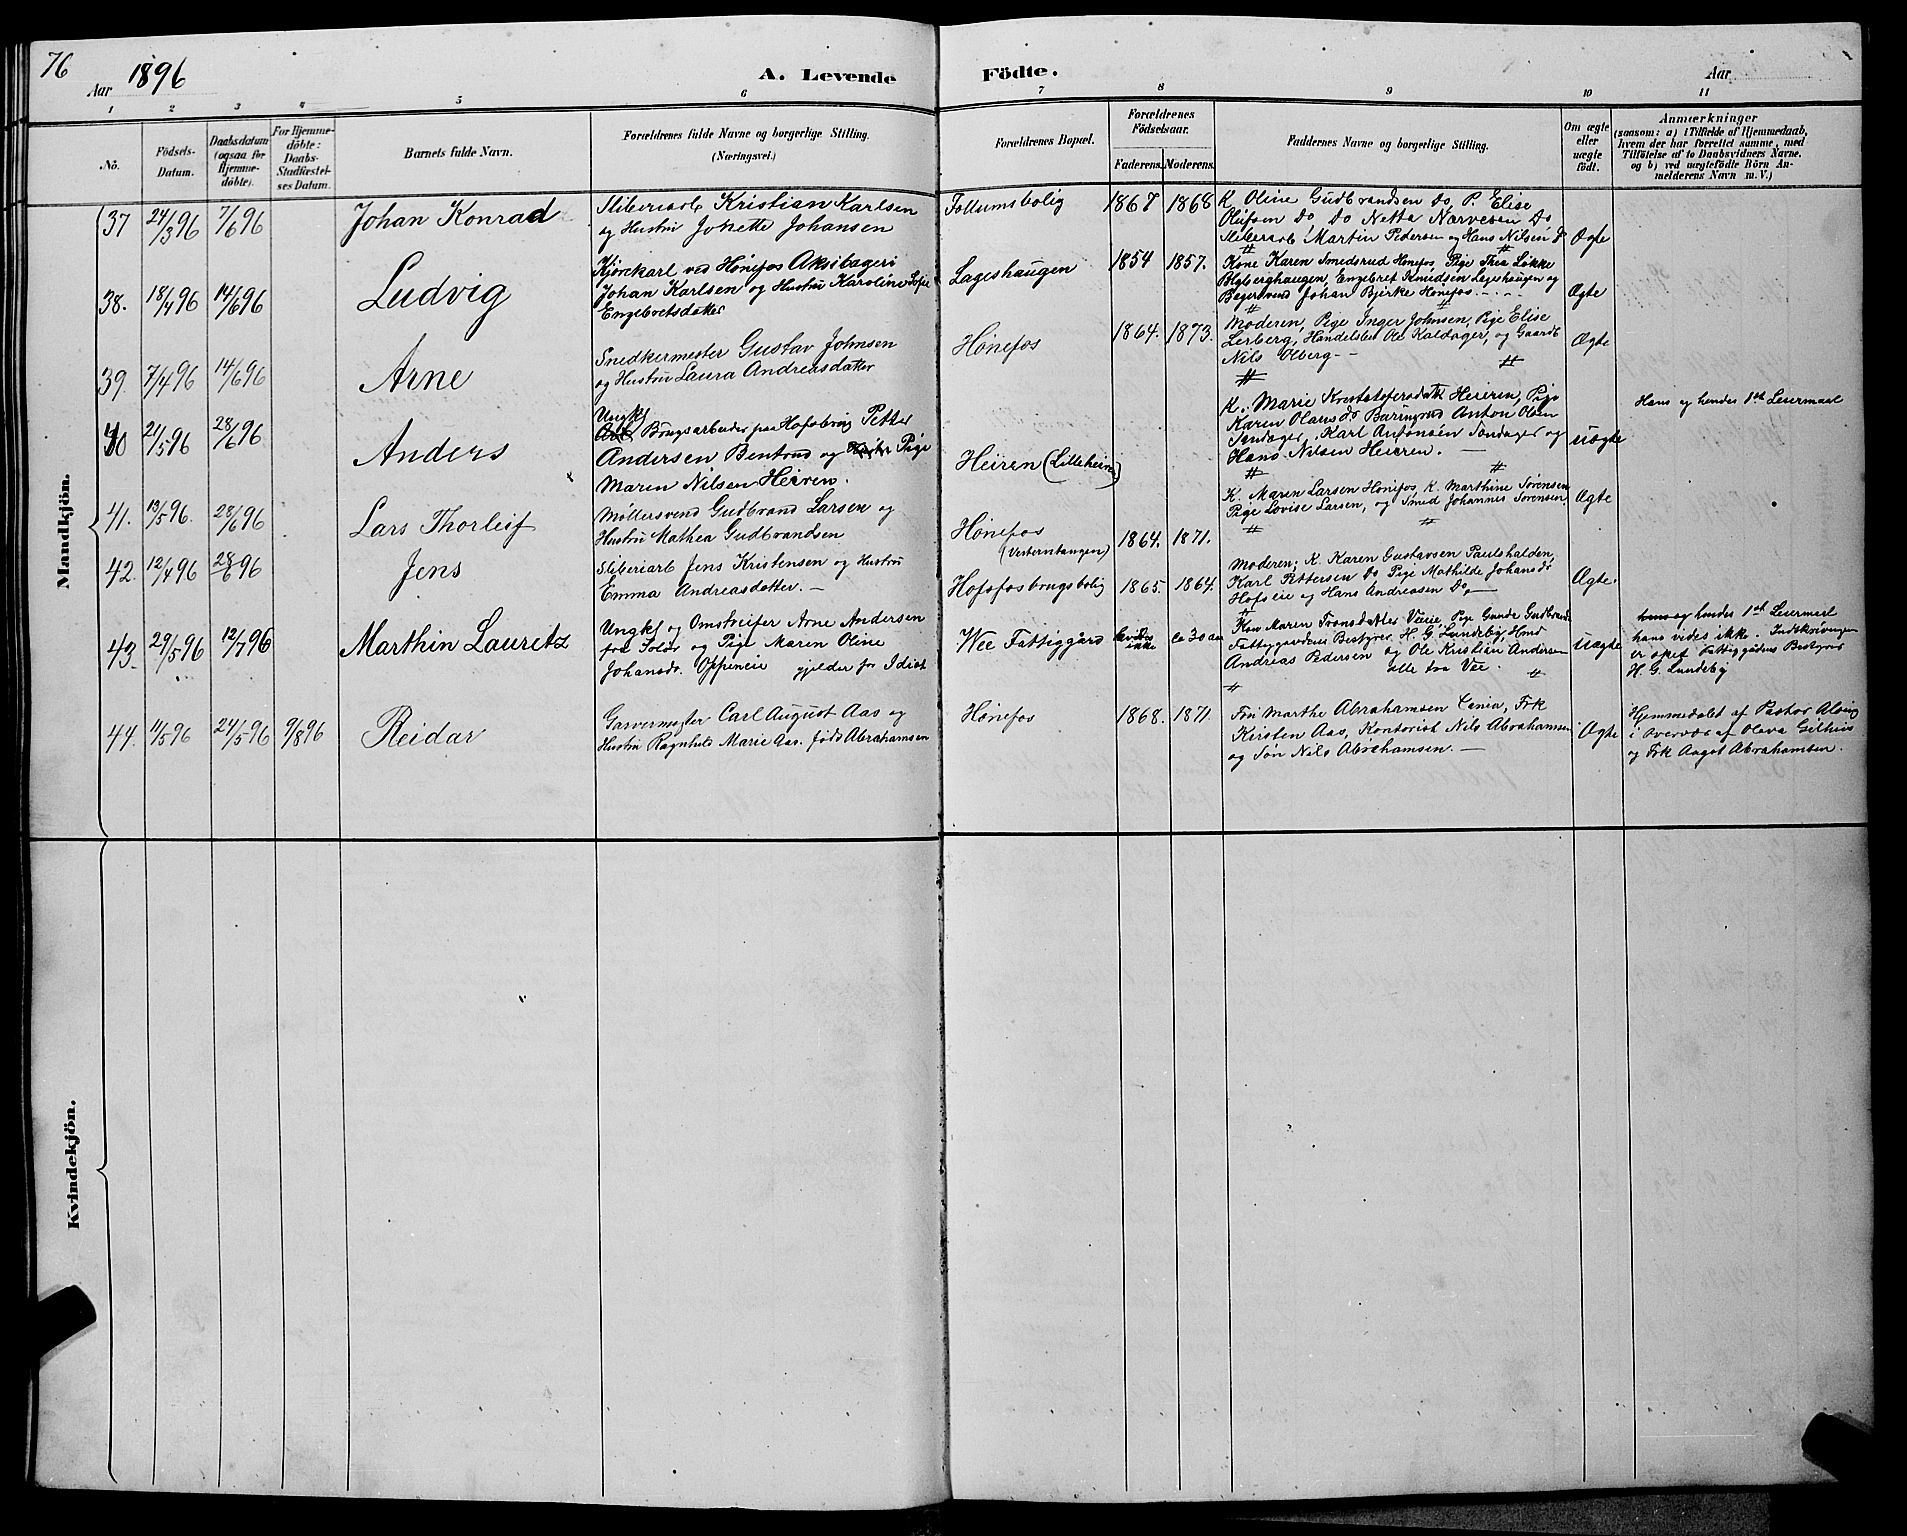 76
Aar 1896
A. Levende Födte.
Aar
1 2 3 4 5 6 7 8 9 10 11
No.
Födsels-
Datum.
Daabsdatum
(ogsaa for
Hjemme-
döbte).
For Hjemme-
döbte:
Daabs-
Stadfæstel-
ses Datum.
Barnets fulde Navn.
Forældrenes fulde Navne og borgerlige Stilling.
(Næringsvei.)
Forældrenes Bopæl.
Forældrenes
Födselsaar.
Faderens. Moderens.
Faddernes Navne og borgerlige Stilling.
Om ægte
eller
uægte
födt.
Anmærkninger
(saasom: a) i Tilfælde af Hjemmedaab,
hvem der har forrettet samme, med
Tilföielse af to Daabsvidners Navne.
og b) ved uægtefödte Börn An-
melderens Navn m. V.)
Mandkjön.
37 24/3 96 7/6 96 Johan Konrad
Sliberiarb Kristian Karlsen
og Hustru Johette Johansen
Follumsbolig 1867 1868
K Oline Gudbrandsen Do, P. Elise
Olufsen Do, Do Netta Nærvesen Do
Sliberarb. Martin Pedersen og Hans Nilsen, D
Ægte
38. 18/4 96 14/6 96 Ludvig
Kjörekarl ved Hönefos Aksibageri
Johan Karlsen og Hustru Karoline Sofie
Engebretsdatter
Lageshaugen 1854 1857.
Kone Karen Smedsrud Hönefos, Pige Thea Lökke
Blyberghaugen, Engebret Knudsen Lageshaugen og
Bagersvend Johan Bjerke Hönefos
Ægte
39. 7/4 96 14/6 96 Arne
Snedkermester Gustav Johnsen
og Hustru Laura Andreasdatter
Hönefos 1864. 1873.
Moderen, Pige Inger Johnsen, Pige Elise
Lerberg, Handelsbet Ole Kaldager, og Gaardb
Nils Olberg
Ægte
40 21/5 96 28/6 96 Anders
Ungkl
Brugsarbeider paa Hofsbrug Petter
Andersen Bentrud og Pige
Maren Nilsen Heieren.
Heiren (Lilleheiren)
K. Marie Kristofersdatt Heieren, Pige
Karen Olansd Anton Olsen
Tandager, Karl Antonsen Tandager og
Hans Nilsen Heieren.
uægte
Hans og hendes 1ste Leiermaal
41. 13/5 96. 28/6 96 Lars Thorleif
Möllersvend Gudbrand Larsen og
Hustru Mathea Gudbrandsen
Hönefos
(Vesterntangen) 1864. 1871.
K. Maren Larsen Hönefos, K. Marthine Sörensen
Pige Lovise Larsen, og Smed Johannes Sörensen
Ægte
42. 12/4 96 28/6 96 Jens
Sliberiarb Jens Kristensen og Hustru
Emma Andreasdatter.
Hofsfos brugsbolig 1865. 1864.
Moderen; K. Karen Gustavsen Paulshalden,
Karl Pettersen Do Pige Mathilde Johansd
Hofseie og Hans Andreasen Do
Ægte.
43. 29/5 96 12/7 96 Marthin Lauritz
Ungkl og Omstreifer Arne Andersen
fra Solör og Pige Maren Oline
Johansdr. Oppeneie gjelder for Idiot
Wee Fattiggård vides ikke ca 30 aar
Kon Maren Transdatter Veeie, Pige Gunda Gudbrands
Fattiggaardens Bestyrer H. G. Lundeby, Hmd
Andreas Pedersen og Ole Kristian Andersen
alle fra Vee.
uægte
hans og hendes 1st Leiermaal
hans vides ikke. Indskrivningen
er skeet Fattiggådens Bestyrer
H. G. Lundeby
44. 11/5 96 24/5 96 9/8 96 Reidar
Garvermester Carl August Aas og
Hustru Ragnhild Marie Aas. född Abrahamsen
Hönefos 1868. 1871.
Fru Marthe Abrahamsen Frk
Kirsten Aas, Kontorist Nils Abrahamsen
og Sön Nils Abrahamsen.
Ægte
Hjemmedöbt af Pastor
i overvær af Olava Gilhuus
og Frk Aagot Abrahamsen.
Kvindekjön.